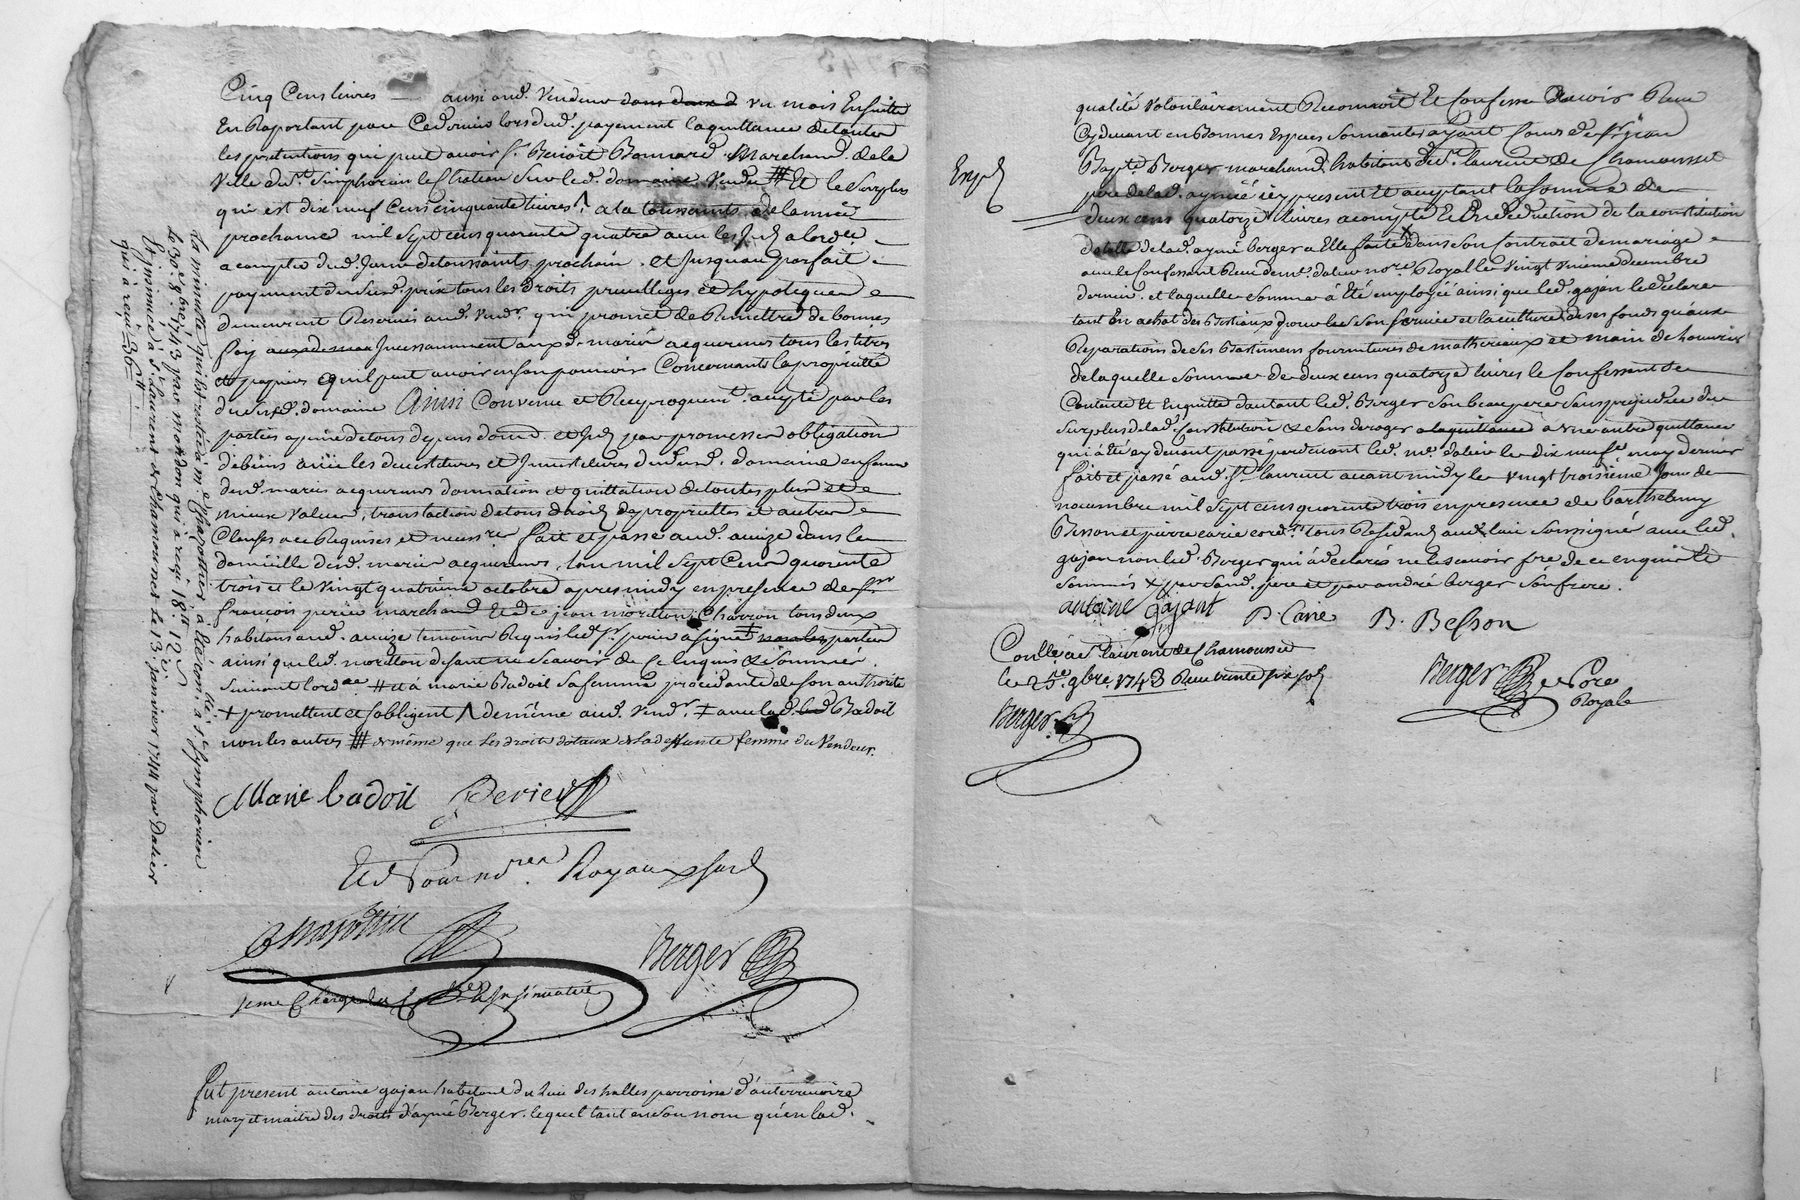 Cinq Cens livres — aussi aud. Vendeur dans deux d un mois Ensuitte
En Raportant par led. lors dud. payement la quittance de toutes
les pretentions qui peut avoir Sr. Benoit Bonnard Marchand de la
Ville de St. Simphorien le Chateau Sur led. domaine Vendu # Et le Surplus
qui est dix neuf Cens cinquante livres a la toussaints de l'année
prochaine mil sept cens quarente quatre avec les
a compter dud. Jour de toussaints prochain et Jusqu'au parfait
payement du susd. prix tous les droits privilleges et hypoteques
demeurent Reservés aud. Vendr. qui promet de Remettre de bonne
foy aux d. mariés acquereurs tous les titres
et papiers qu'il peut avoir en son pouvoir Concernants la proprietté
du susd. domaine Ainsi Convenu et Reciproquemt. accepté par les
parties a peine de tous depens dom. et par promesses obligation
de biens avec les devestitures et Investitures dud. domaine en faveur
desd. mariés acquereurs donnation et quittation de toutes plus et
mieux Values, translaction de tous droits de proprietté et autres
Clauses a ce Requises et necessres fait et passé aud. aveize dans le
domicille desd. mariés acquereurs, l'an mil sept Cens quarente
trois et le vingt quatrieme octobre apres midy en presence de Sr.
françois perier marchand Et de jean moretton Charron tous deux
habitans aud. aveize temoins Requis led. Sr. perier a signé non les parties
ainsi que led. moretton disant ne scavoir de ce Enquis & Sommés
Suivant lord.ce # et à marie Badoil sa femme procedante de son authorité
+ promettent et sobligent de même aud. Vendr. + avec lad. Badoil
non les autres # & même que les droits dotaux de la deffunte femme du Vendeur.
Marie badoil perier
Et Nous nores. Royaux susd.
Chazottier
Berger
fut present antoine gajan habitant du lieu des halles parroisse d'
mary et maitre des droits d'aymé Berger. lequel tant en son nom qu'en lad.
La minutte qui est restée à me. Chazottier à été conllée. à St. Symphorien
le 30e. 8bre. 1743 par mondon qui à reçu 18 lt. 12 s.
Et insinuée à St. Laurent de Chamousset le 13 janvier 1744 par Dalier
qui à reçu 36 lt.
Expé
qualité volontairement Reconnoit Et Confesse d'avoir Reçu
Cy devant en Bonnes Especes Sonnantes ayant Cours de Sr. jean
Bapte. Berger marchand habitant de St. laurent de Chamousset
pere de lad. aymé icy present Et acceptant la somme de
deux cens quatorze livres a compte Et En deduction de la constitution
dotalle de lad. aymé berger a Elle faite dans son Contrat de mariage
avec le Confessant Reçu de me. dalier nore. Royal le vingt unieme decembre
dernier. et laquelle somme à été employée ainsi que led. gajan le declare
tant En achat des Bestiaux pour la ferme et la culture de ses fonds qu'aux
Reparations de ses Batiments fournitures de mathereaux et main de l'ouvrier
de laquelle somme de deux cens quatorze livres le Confessant se
Contente Et En quitte d'autant led. Berger Son beau pere Sans prejudice du
surplus de lad. Constitution & sans deroger a la quittance à une autre quittance
qui à été cy devant passé pardevant led. me. dalier le dix neufe. may dernier
fait et passé aud. St. laurent avant midy le vingt troisieme Jour de
novembre mil Sept cens quarente trois en presence de barthelemy
Besson et pierre carié cordr. tous Residents aud. lieu soussignés avec led.
gajan non led. Berger qui à declaré ne le scavoir fre de ce enquis Et
Sommés & par Sand. pere et par andré berger Son frere.
antoine gajant P. Carié B. Besson
Conllé à St. laurent de Chamousset
le 25e. 9bre. 1743 Reçu trente six sols
Berger
Berger Nore
Royal